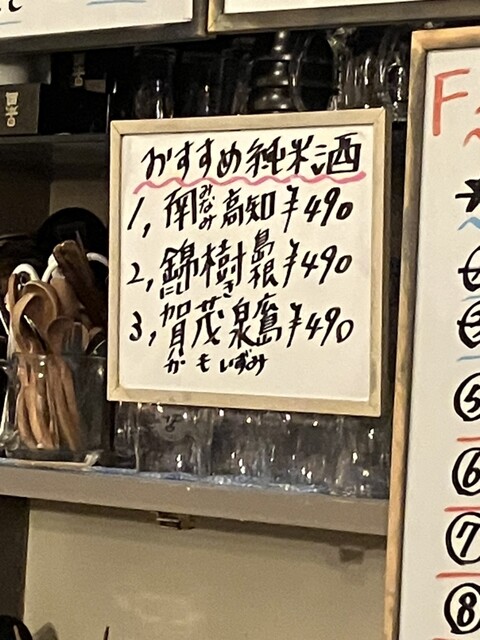 おすすめ純米酒
1, 南 みなみ 高知 ¥490
2, 錦樹 島根 ¥490
にしき
3, 賀茂泉 広島 ¥490
かもいずみ
F
⑤
⑥
⑦
⑧